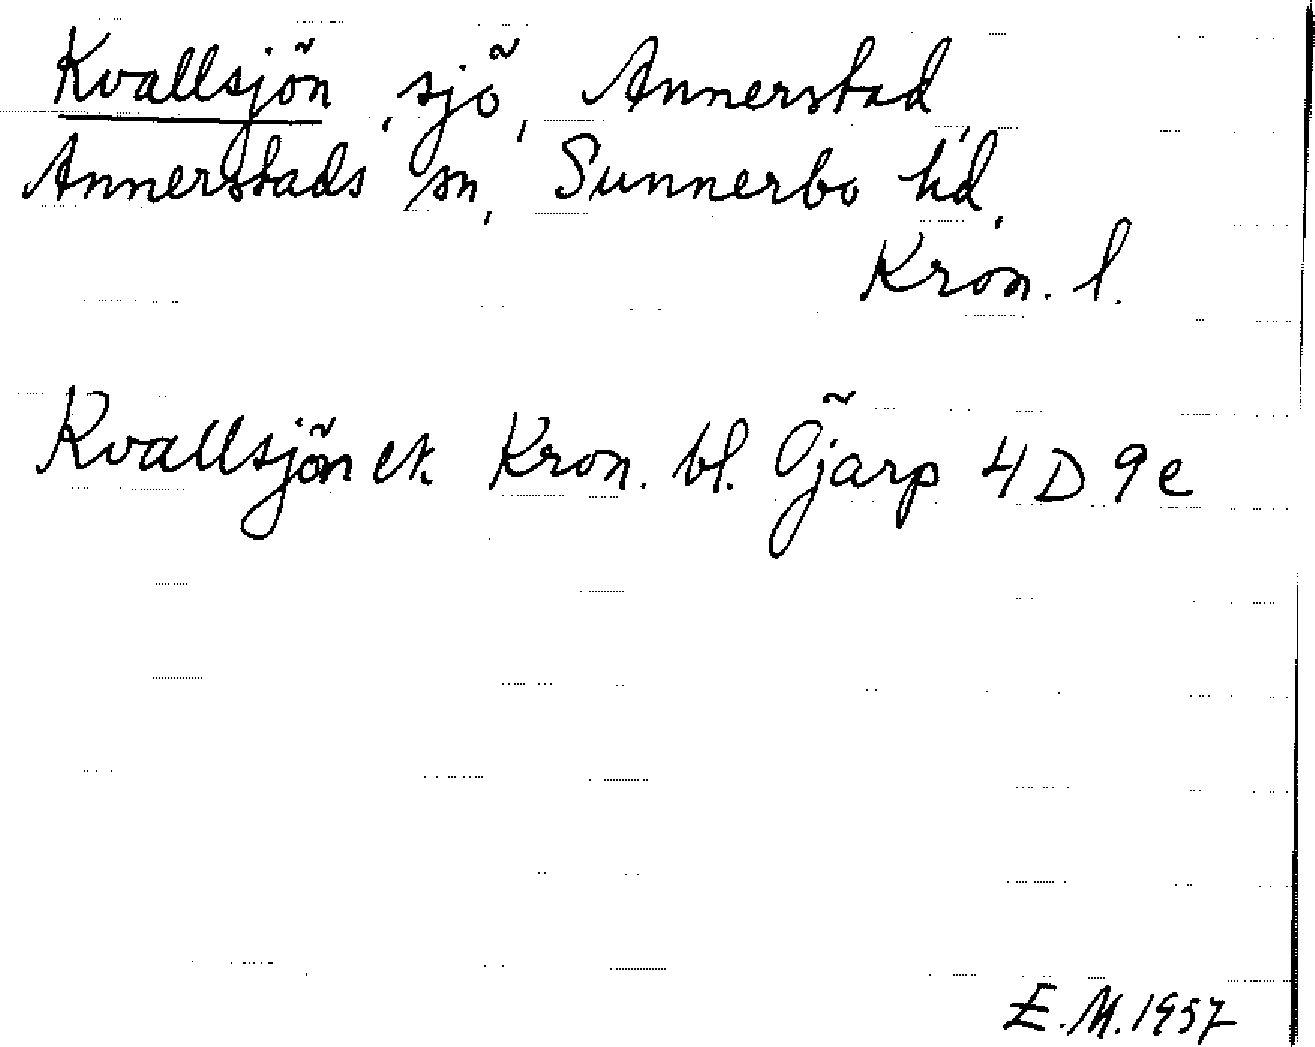 Kvallsjön, sjö, Annerstad,
Annerstads sn, Sunnerbo hd,
Kron. l.
Kvallsjön ek. Kron. bl. Öjarp 4D 9e
E.M. 1957